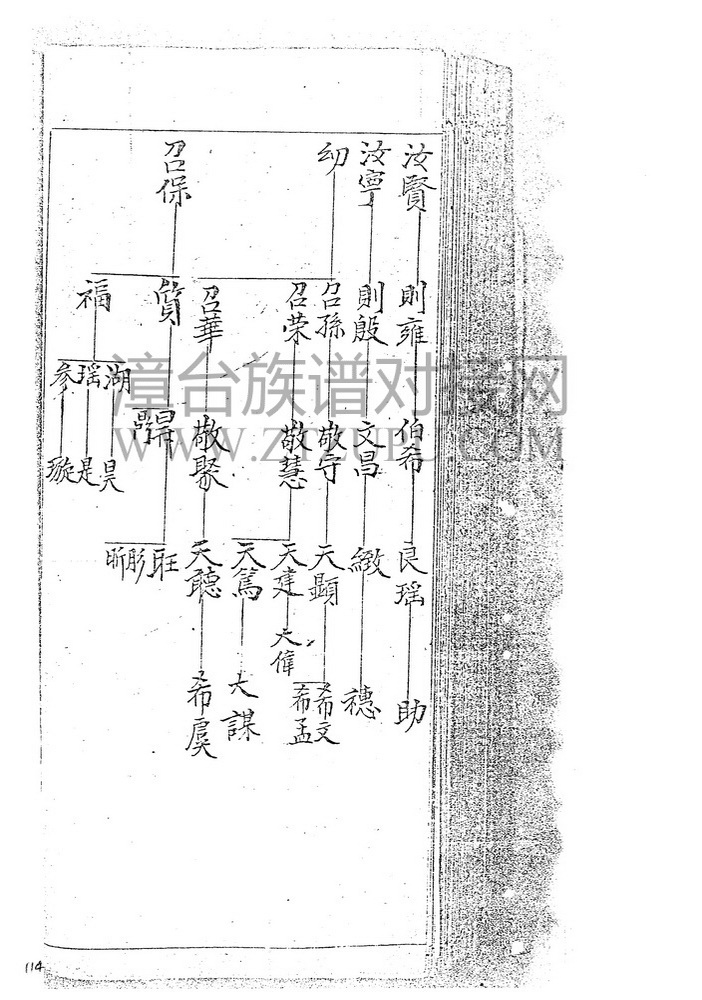 汝賢
則雍
伯希
良瑶
助
汝寧
則殷
文昌
緻
穗
幼
召孫
敬守
天顯
希文
希孟
召荣
敬慧
天建
天偉
天篤
大謀
召華
敬聚
天聽
希虞
召保
質
旺
彤
昕
福
湖
瑶
参
昊
是
璇
漳台族谱对接网
WWW.ZTZUPU.COM
114